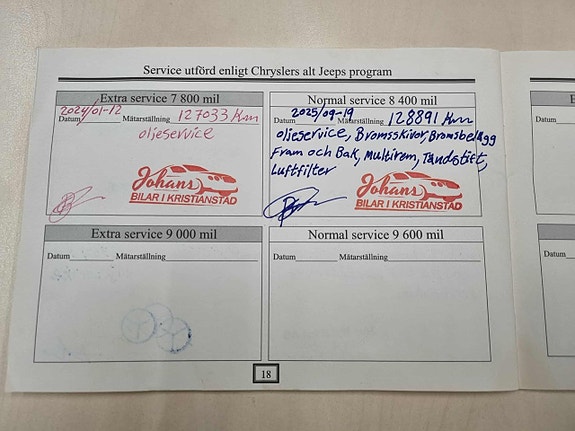 Service utförd enligt Chryslers alt Jeeps program
Extra service 7 800 mil
2024/01-12
Datum Mätarställning 127033 Km
oljeservice
Johans
BILAR I KRISTIANSTAD
Normal service 8 400 mil
2025/09-19
Datum Mätarställning 128891 Km
oljeservice, Bromsskivor, Bromsbelägg
Fram och Bak, Multirem, Tändstift,
Luftfilter
Johans
BILAR I KRISTIANSTAD
Extra service 9 000 mil
Datum Mätarställning
Normal service 9 600 mil
Datum Mätarställning
18